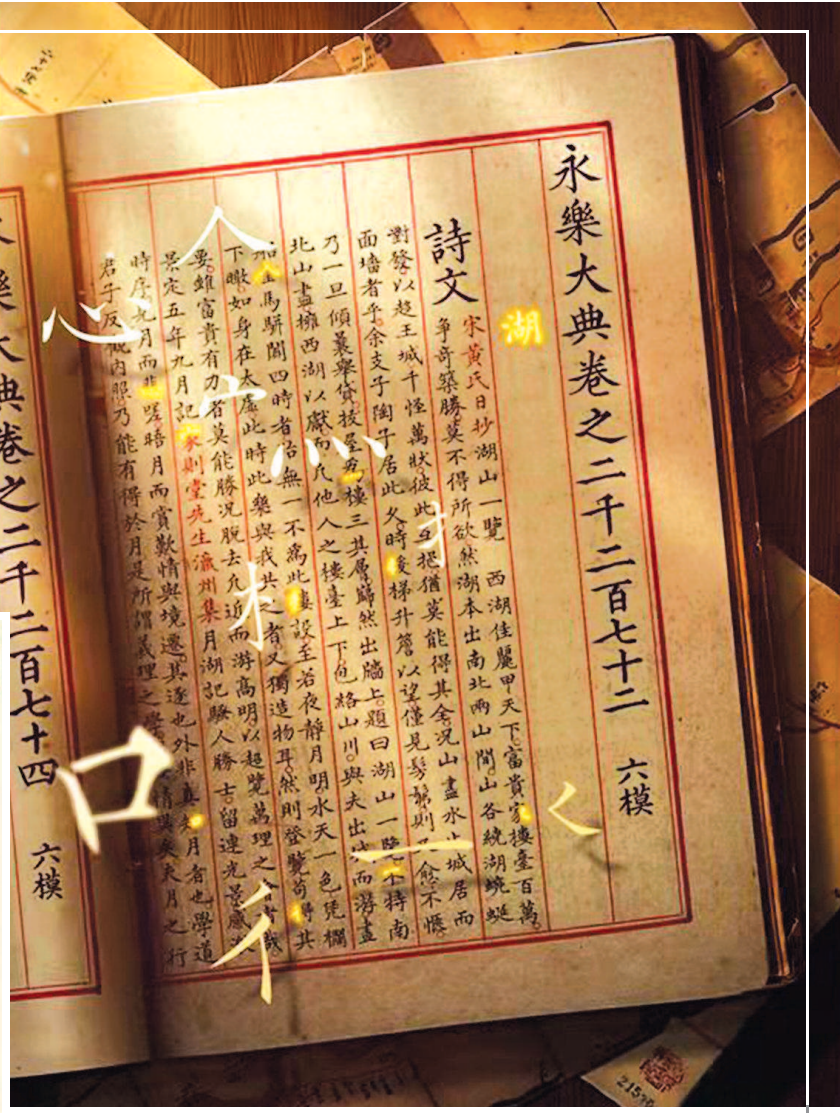 永樂大典卷之二千二百七十二 六模
湖
詩文
宋黃氏日抄湖山一覽 西湖佳麗甲天下富貴家樓臺百萬
爭奇築勝莫不得所欲然湖本出南北兩山間山各繞湖蜿蜒
對發以趍王城千怪萬狀彼此互挹猶莫能得其全况山盡水止城居而
面墻者乎余支子陶子居此久時後梯升簷以望僅見髣髴則 不愜
乃一旦傾囊舉貸拔屋爲樓三其層巋然出牆上題曰湖山一覽不特南
北山盡擁西湖以獻而凡他人之樓臺上下包絡山川與夫出城而游畫
船金馬駢闐四時者 無一不爲此樓設至若夜靜月明水天一色凭欄
下瞰如身在太虛此時此樂與我共之者又獨造物耳然則登覽苟得其
要雖富貴有力者莫能勝况脫去凡近而游高明以超覽萬理之會者哉
景定五年九月記家則堂先生瀛州集月湖記騷人勝士留連光景感
時序 月而悲嗟晤月而賞歎情與境遷其逐也外非真知月者也學道
君子反觀內照乃能有得於月是所謂義理之學 情異矣夫月之行
樂大典卷之二千二百七十四 六模
人
心
宀
灬
扌
木
口
く
一
彳